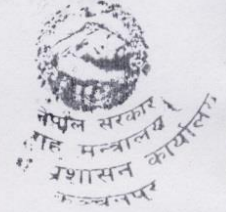 नेपाल सरकार
गृह मन्त्रालय
प्रशासन कार्यालय
कञ्चनपुर